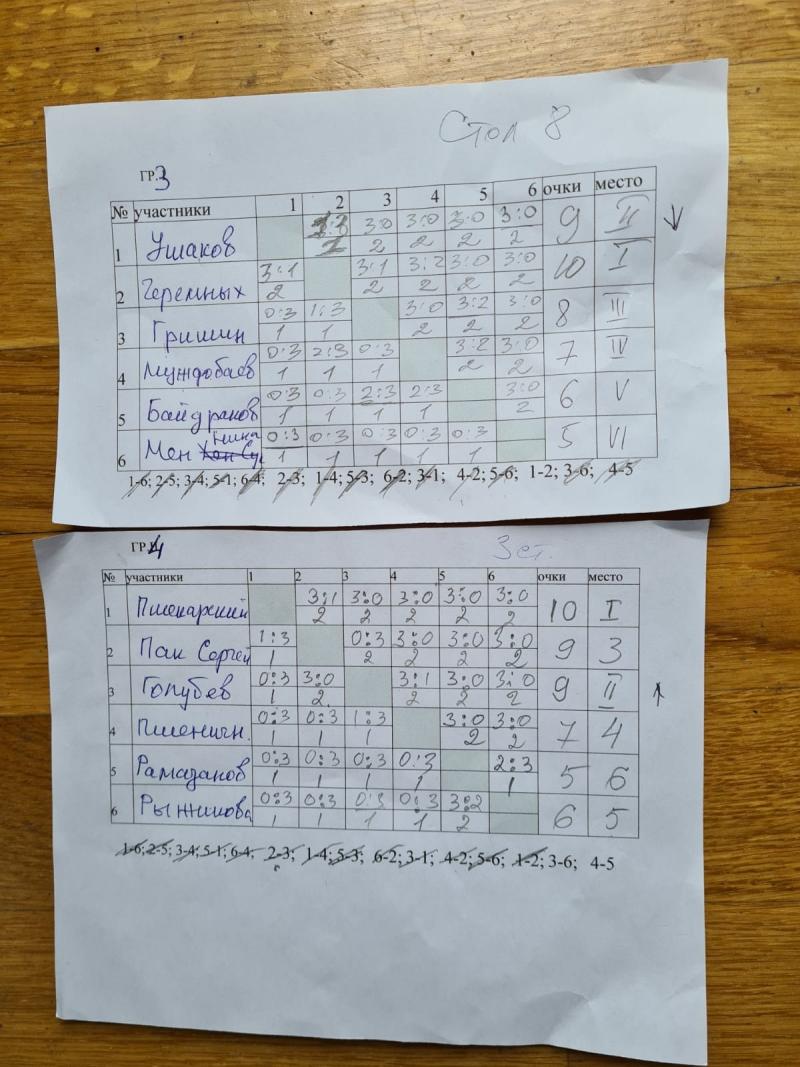 Стол 8
ГР.3
№ участники 1 2 3 4 5 6 очки место
1 Ушаков 3:0 3:0 3:0 3:0 9 II
2 2 2 2 2
2 Черемных 3:1 3:1 3:2 3:0 3:0 10 I
2 2 2 2 2
3 Гришин 0:3 1:3 3:0 3:2 3:0 8 III
1 1 2 2 2
4 Муждабаев 0:3 2:3 0:3 3:2 3:0 7 IV
1 1 1 2 2
5 0:3 0:3 2:3 2:3 3:0 6 V
1 1 1 1 2
6 Мен 0:3 0:3 0:3 0:3 0:3 5 VI
1 1 1 1 1
1-6; 2-5; 3-4; 5-1; 6-4; 2-3; 1-4; 5-3; 6-2; 3-1; 4-2; 5-6; 1-2; 3-6; 4-5
ГР.4
3 ст.
№ участники 1 2 3 4 5 6 очки место
1 Пшекарский 3:1 3:0 3:0 3:0 3:0 10 I
2 2 2 2 2
2 Пак Сергей 1:3 0:3 3:0 3:0 3:0 9 3
1 2 2 2 2
3 Голубев 0:3 3:0 3:1 3:0 3:0 9 II
1 2 2 2 2
4 Пшеничн. 0:3 0:3 1:3 3:0 3:0 7 4
1 1 1 2 2
5 Рамазанов 0:3 0:3 0:3 0:3 2:3 5 6
1 1 1 1 1
6 Рыжикова 0:3 0:3 0:3 0:3 3:2 6 5
1 1 1 1 2
1-6; 2-5; 3-4; 5-1; 6-4; 2-3; 1-4; 5-3; 6-2; 3-1; 4-2; 5-6; 1-2; 3-6; 4-5